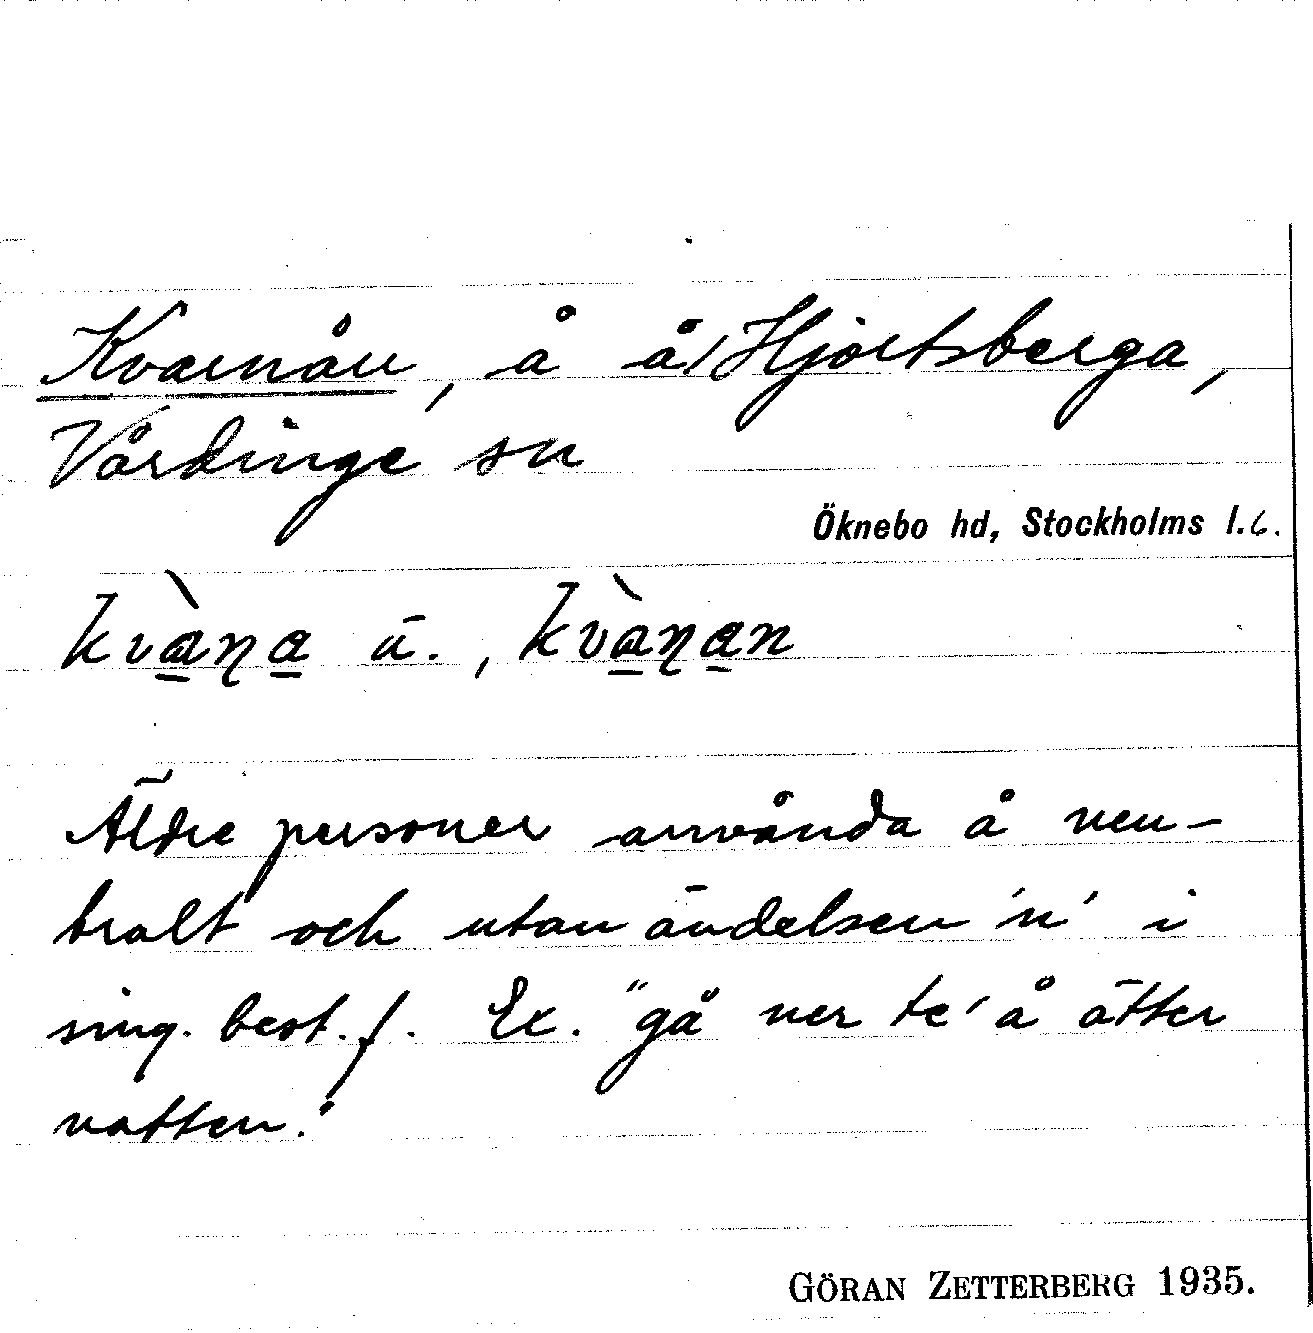 Kvarnån, å å/Hjortsberga,
Vårdinge sn
Öknebo hd, Stockholms l.
kvàṉa̱ ä., kvàṉa̱n
Äldre personer använda å neu-
tralt och utan ändelsen 'n' i
sing. best. f. Ex. "gå ner te' å ätter
vatten."
GÖRAN ZETTERBERG 1935.